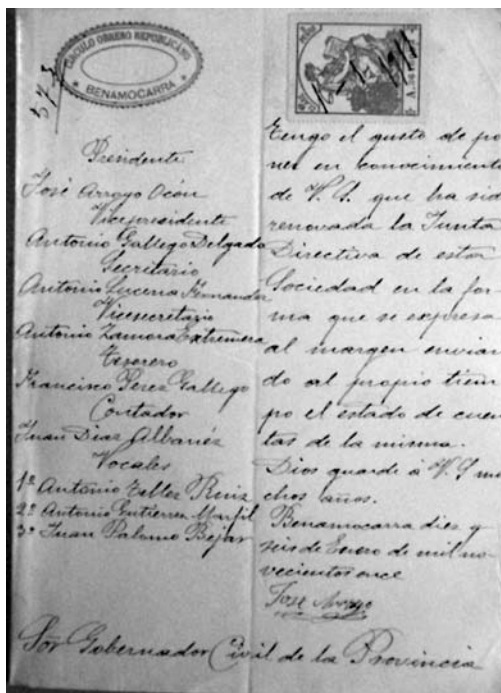 CÍRCULO OBRERO REPUBLICANO
BENAMOCARRA
373
1-1911
Presidente
José Arroyo Ocón
Vicepresidente
Antonio Gallego Delgado
Secretario
Antonio Lucena Fernandez
Vicesecretario
Antonio Zamora Extremera
Tesorero
Francisco Perez Gallego
Contador
Juan Diaz Albanéz
Vocales
1º Antonio Tellez Ruiz
2º Antonio Gutierrez Marfil
3º Juan Palomo Bejar
Tengo el gusto de po
ner en conocimiento
de V. S. que ha sid
renovada la Junta
Directiva de esta
Sociedad en la for
ma que se expresa
al margen envian
do al propio tiem
po el estado de cuen
tas de la misma.
Dios guarde á V. S mu
chos años.
Benamocarra diez y
seis de Enero de mil no
vecientos once
José Arroyo
Sor Gobernador Civil de la Provincia